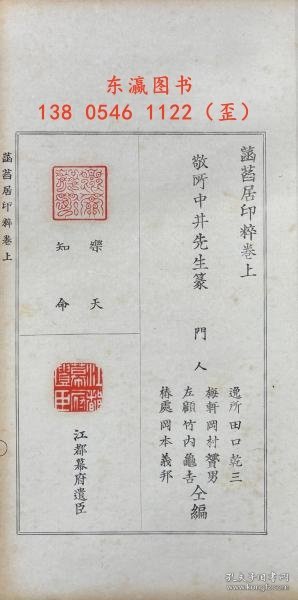 东瀛图书
138 0546 1122（歪）
菡萏居印粹卷上
敬所中井先生篆
門人
逸所田口乾三
梅軒岡村贇男
左顧竹内龜吉
椿處岡本義邦
仝編
樂天
知命
江都幕府遺臣
菡萏居印粹卷上
孔夫子旧书网